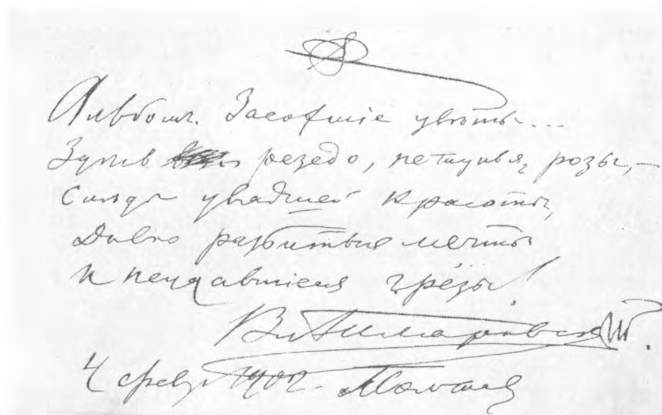 Альбомъ. Засохшіе цвѣты...
Здѣсь резедо, петунья, розы, —
Слѣды увядшей красоты,
Давно разбитыя мечты
И неудавшіеся грёзы!
Вл. Гиляровскій.
4 февр. 1902. Москва